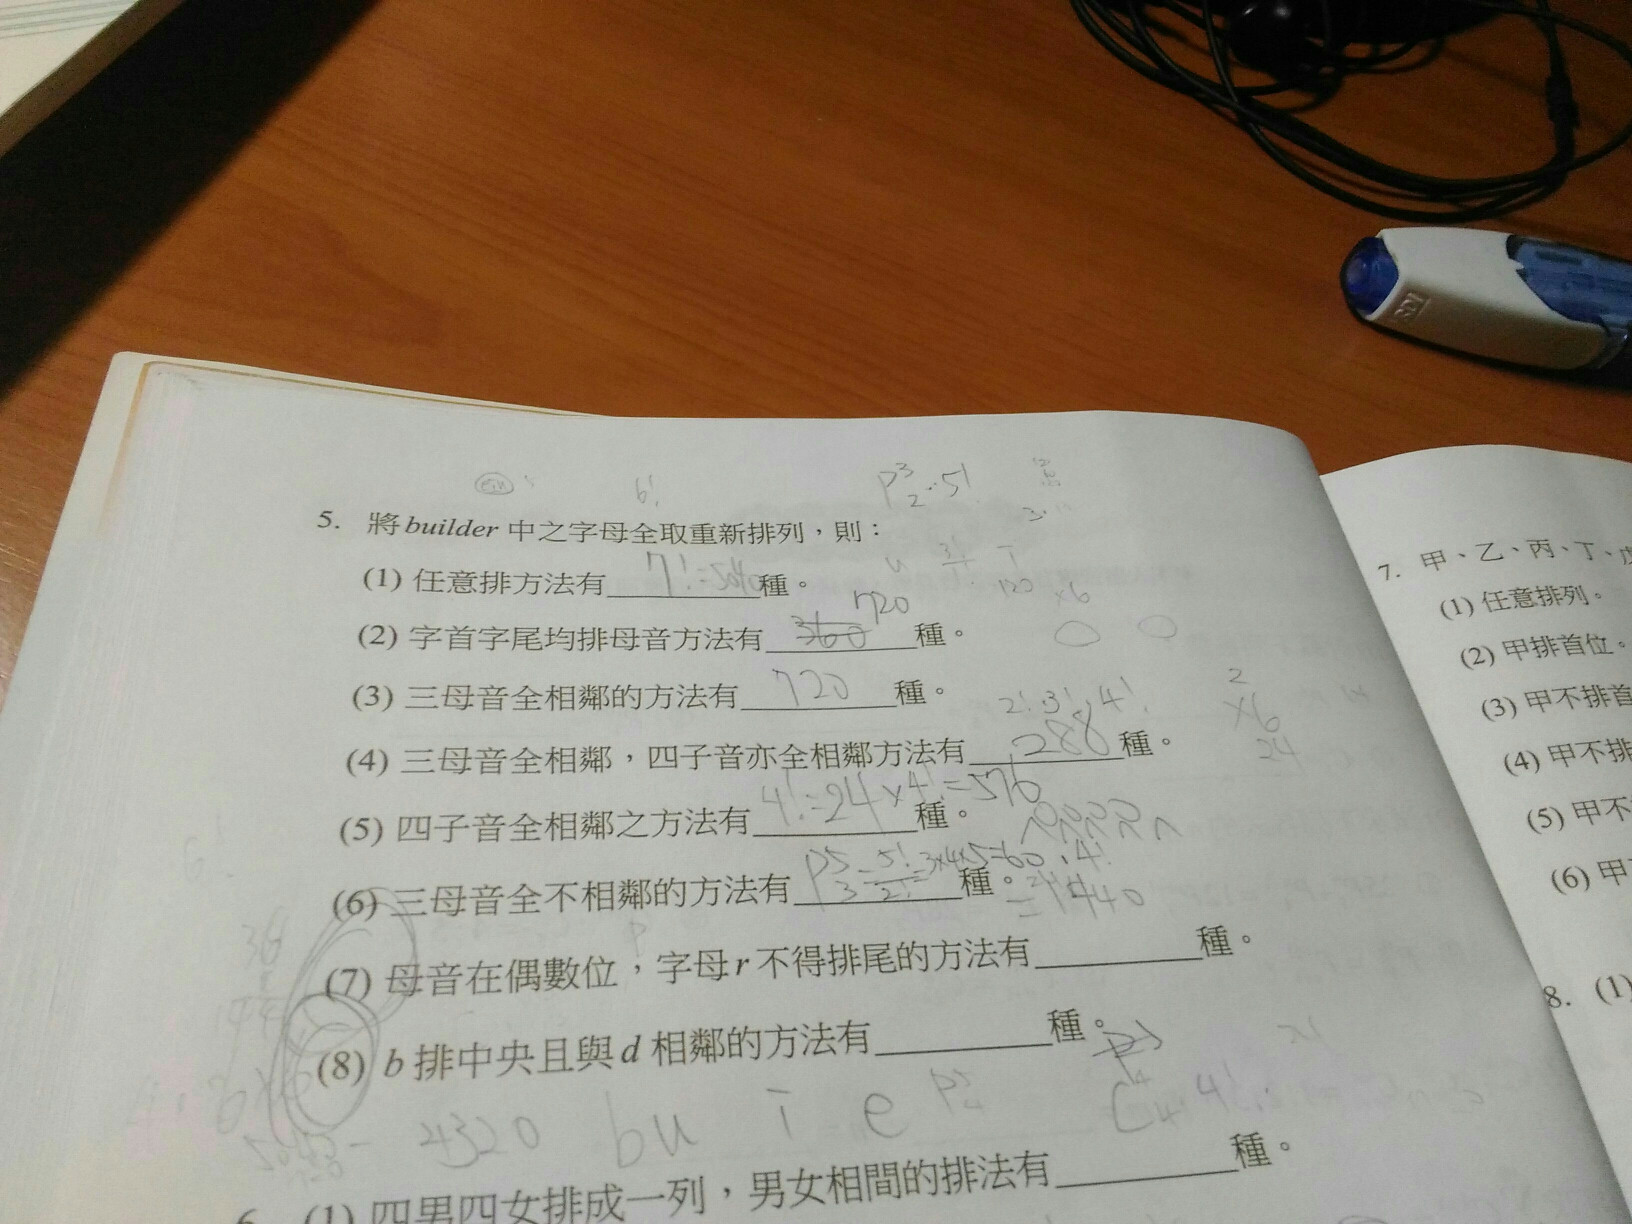 6!
P³₂·5!
5. 將builder中之字母全取重新排列，則：
(1) 任意排方法有 7!=5040 種。
120 ×6
720
(2) 字首字尾均排母音方法有 360 種。
(3) 三母音全相鄰的方法有 720 種。
2!·3!·4!
(4) 三母音全相鄰，四子音亦全相鄰方法有 288 種。
×6
24
(5) 四子音全相鄰之方法有 4!=24×4!=576 種。
(6) 三母音全不相鄰的方法有 P⁵₃=5!/2!=3×4×5=60·4! 種。
=1440
(7) 母音在偶數位，字母r不得排尾的方法有 種。
(8) b排中央且與d相鄰的方法有 種。
4320 bu i e
(1) 四男四女排成一列，男女相間的排法有 種。
7. 甲、乙、丙、丁、
(1) 任意排列。
(2) 甲排首位。
(3) 甲不排首
(4) 甲不排
(5) 甲不
(6) 甲
8. (1)
SDI